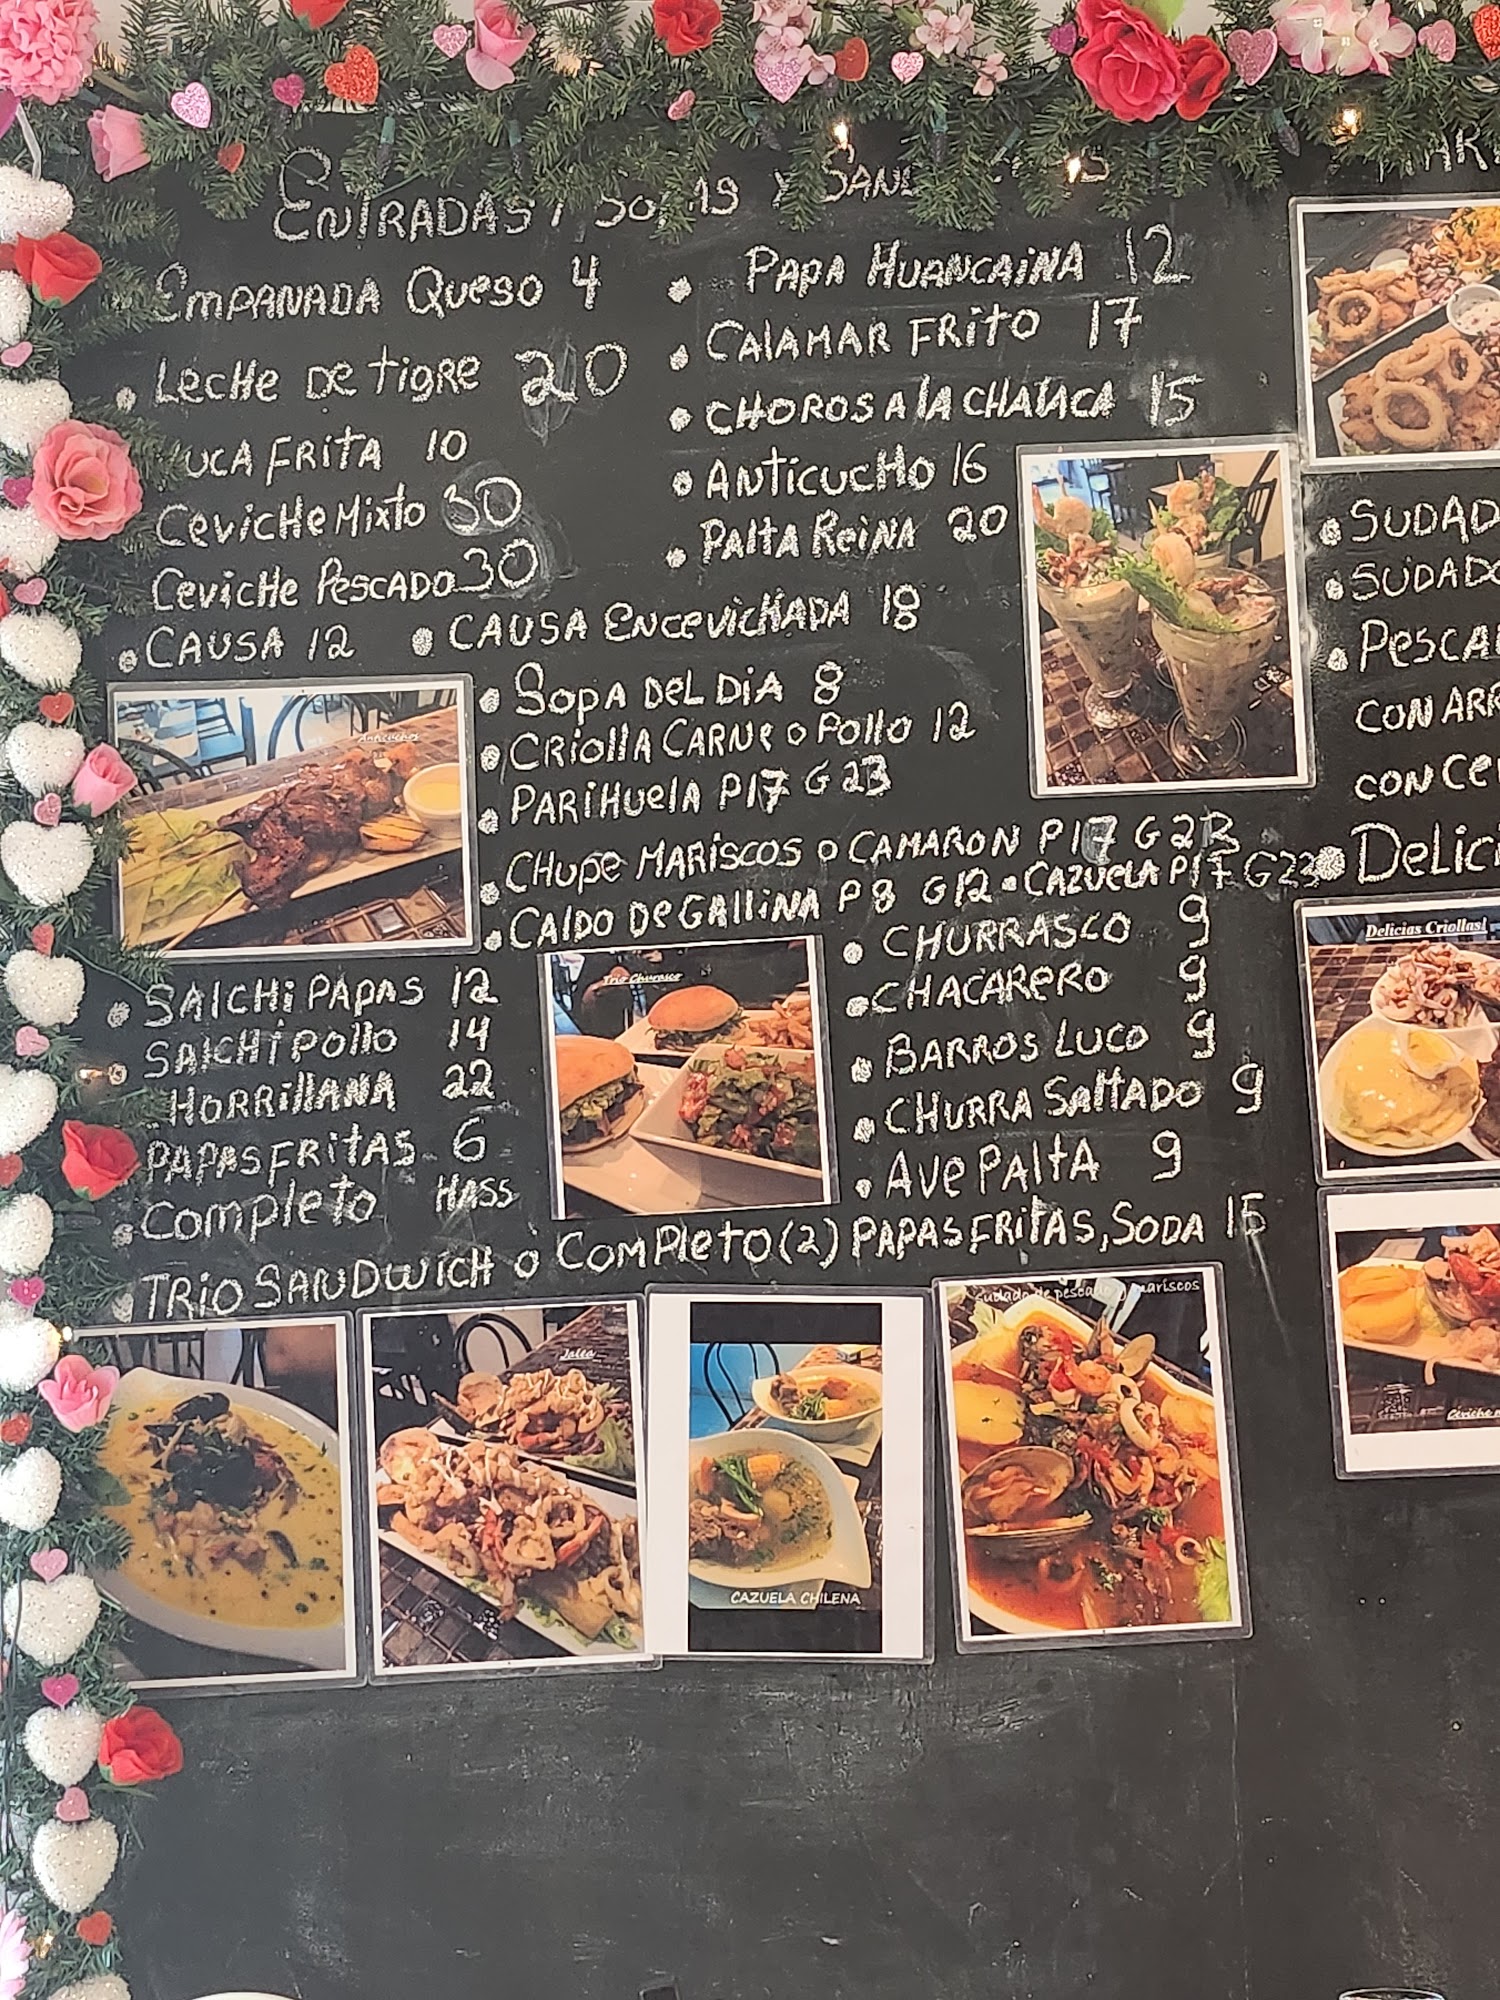 ENTRADAS
EMPANADA QUESO 4
LECHE DE TIGRE 20
YUCA FRITA 10
CEVICHE MIXTO 30
CEVICHE PESCADO 30
• CAUSA 12 • CAUSA ENCEVICHADA 18
• PAPA HUANCAINA 12
• CALAMAR FRITO 17
• CHOROS A LA CHALACA 15
• ANTICUCHO 16
• PALTA REINA 20
• SOPA DEL DIA 8
• CRIOLLA CARNE O POLLO 12
• PARIHUELA P17 G 23
• CHUPE MARISCOS O CAMARON P17 G 23
• CALDO DE GALLINA P 8 G12 • CAZUELA P17 G23
Anticuchos
• SALCHI PAPAS 12
SALCHIPOLLO 14
HORRILLANA 22
PAPAS FRITAS 6
• COMPLETO HASS
Trio Churasco
• CHURRASCO 9
• CHACARERO 9
• BARROS LUCO 9
• CHURRA SALTADO 9
• AVE PALTA 9
• TRIO SANDWICH O COMPLETO (2) PAPAS FRITAS, SODA 15
Jalea
CAZUELA CHILENA
Sudado de pescado y mariscos
• SUDAD
• SUDADO
• PESCA
CON ARR
CON CE
• DELICI
Delicias Criollas!
Ceviche